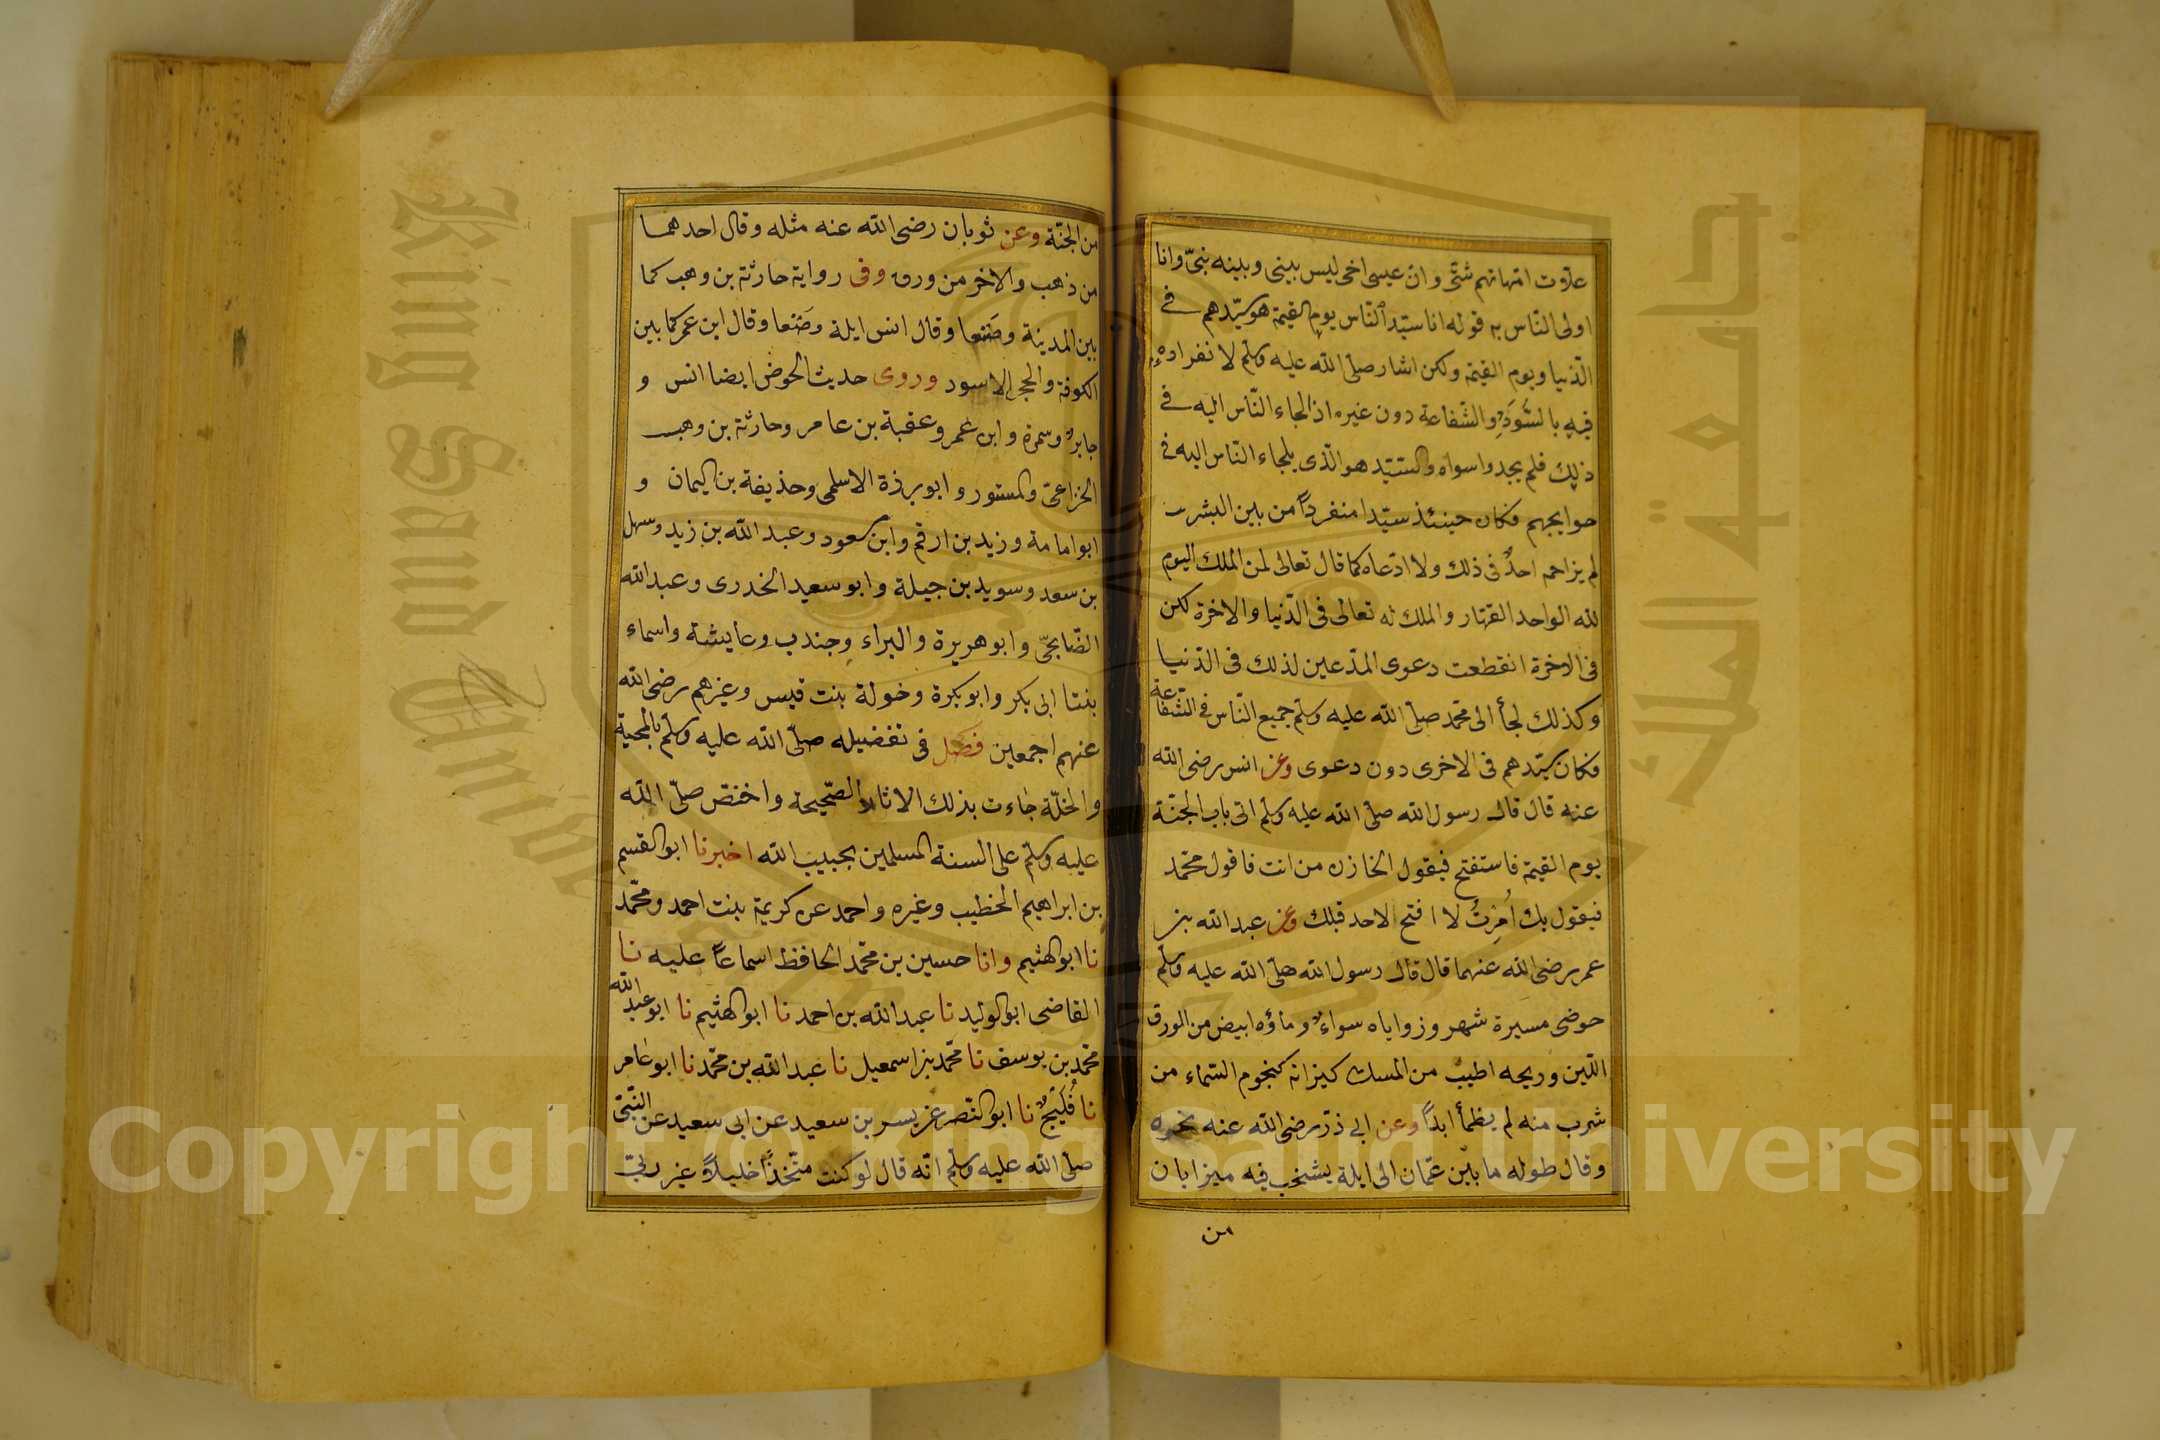 علات امهاتهم شتى وان عيسى اخى ليس بينى وبينه نبىّ وانا
اولى الناس به قوله انا سيّد النّاس يوم القيمة هو سيّدهم فى
الدّنيا ويوم القيمة ولكن اشار صلّى الله عليه وسلّم لانفراده
فيه بالسّودد والشّفاعة دون غيره اذ لجاء النّاس اليه فى
ذلك فلم يجدوا سواه والسيّد هو الّذى يلجاء النّاس اليه فى
حوايجهم فكان حينئذ سيّدا منفرداً من بين البشر
لم يزاحمه احدٌ فى ذلك ولا ادّعاه كما قال تعالى لمن الملك اليوم
لله الواحد القهّار والملك له تعالى فى الدّنيا والاخرة لكن
فى الاخرة انقطعت دعوى المدّعين لذلك فى الدّنيا
وكذلك لجأ الى محمّد صلّى الله عليه وسلّم جميع النّاس فى الشّفاعة
فكان سيّدهم فى الاخرى دون دعوى وعن انس رضى الله
عنه قال قال رسول الله صلّى الله عليه وسلّم اتى باب الجنّة
يوم القيمة فاستفتح فيقول الخازن من انت فاقول محمّد
فيقول بك اُمِرتُ لا افتح لاحد قبلك وعن عبد الله بن
عمر رضى الله عنهما قال قال رسول الله صلّى الله عليه وسلّم
حوضى مسيرة شهر وزواياه سواءٌ وماؤه ابيض من الورق
اللّبن وريحه اطيب من المسك كيزانه كنجوم السّماء من
شرب منه لم يظمأ ابداً وعن ابى ذرّ رضى الله عنه نحوه
وقال طوله ما بين عمّان الى ايلة يشخب فيه ميزابان
من
من الجنّة وعن ثوبان رضى الله عنه مثله وقال احدهما
من ذهب والاخر من ورق وفى رواية حارثة بن وهب كما
بين المدينة وصَنعا وقال انس ايلة وصَنعا وقال ابن عمر كما بين
الكوفة والحجر الاسود وروى حديث الحوض ايضا انس و
جابرٌ وسمرة وابن عمر وعقبة بن عامر وحارثة بن وهب
الخزاعىّ والمستور و ابو برزة الاسلمى وحذيفة بن اليمان و
ابو امامة وزيد بن ارقم وابن مسعود وعبد الله بن زيد وسهل
بن سعد وسويد بن جبلة وابو سعيد الخدرى وعبد الله
الصّنابحىّ وابو هريرة والبراء وجندب وعايشة واسماء
بنتا ابى بكر وابو بكرة وخولة بنت قيس وغيرهم رضى الله
عنهم اجمعين فصل فى تفضيله صلّى الله عليه وسلّم بالمحبة
والخلّة جاءت بذلك الاثار الصّحيحة واختصّ صلّى الله
عليه وسلّم على السنة المسلمين بحبيب الله اخبرنا ابو القسم
بن ابراهيم الخطيب وغيره واحمد عن كريمة بنت احمد ومحمّد
نا ابو الهثيم وانا حسين بن محمّد الحافظ اسماعاً عليه نا
القاضى ابو الوليد نا عبد الله بن احمد نا ابو الهثيم نا ابو عبد الله
محمّد بن يوسف نا محمّد بن اسمعيل نا عبد الله بن محمّد نا ابو عامر
نا فُلَيْحٌ نا ابو النّصر عن بسر بن سعيد عن ابى سعيد عن النّبىّ
صلّى الله عليه وسلّم انّه قال لو كنت متّخذاً خليلاً غير ربّى
King Saud University
جامعة الملك
Copyright © King Saud University